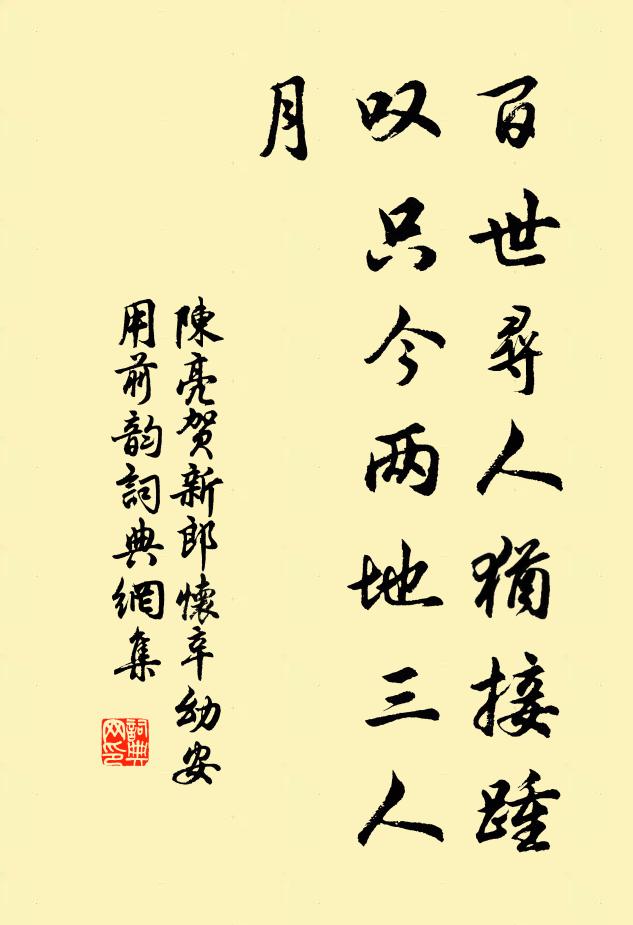 百世尋人猶接踵
叹只今两地三人
月
陳亮賀新郎懷辛幼安
用前韵詞典網集
詞典
网印